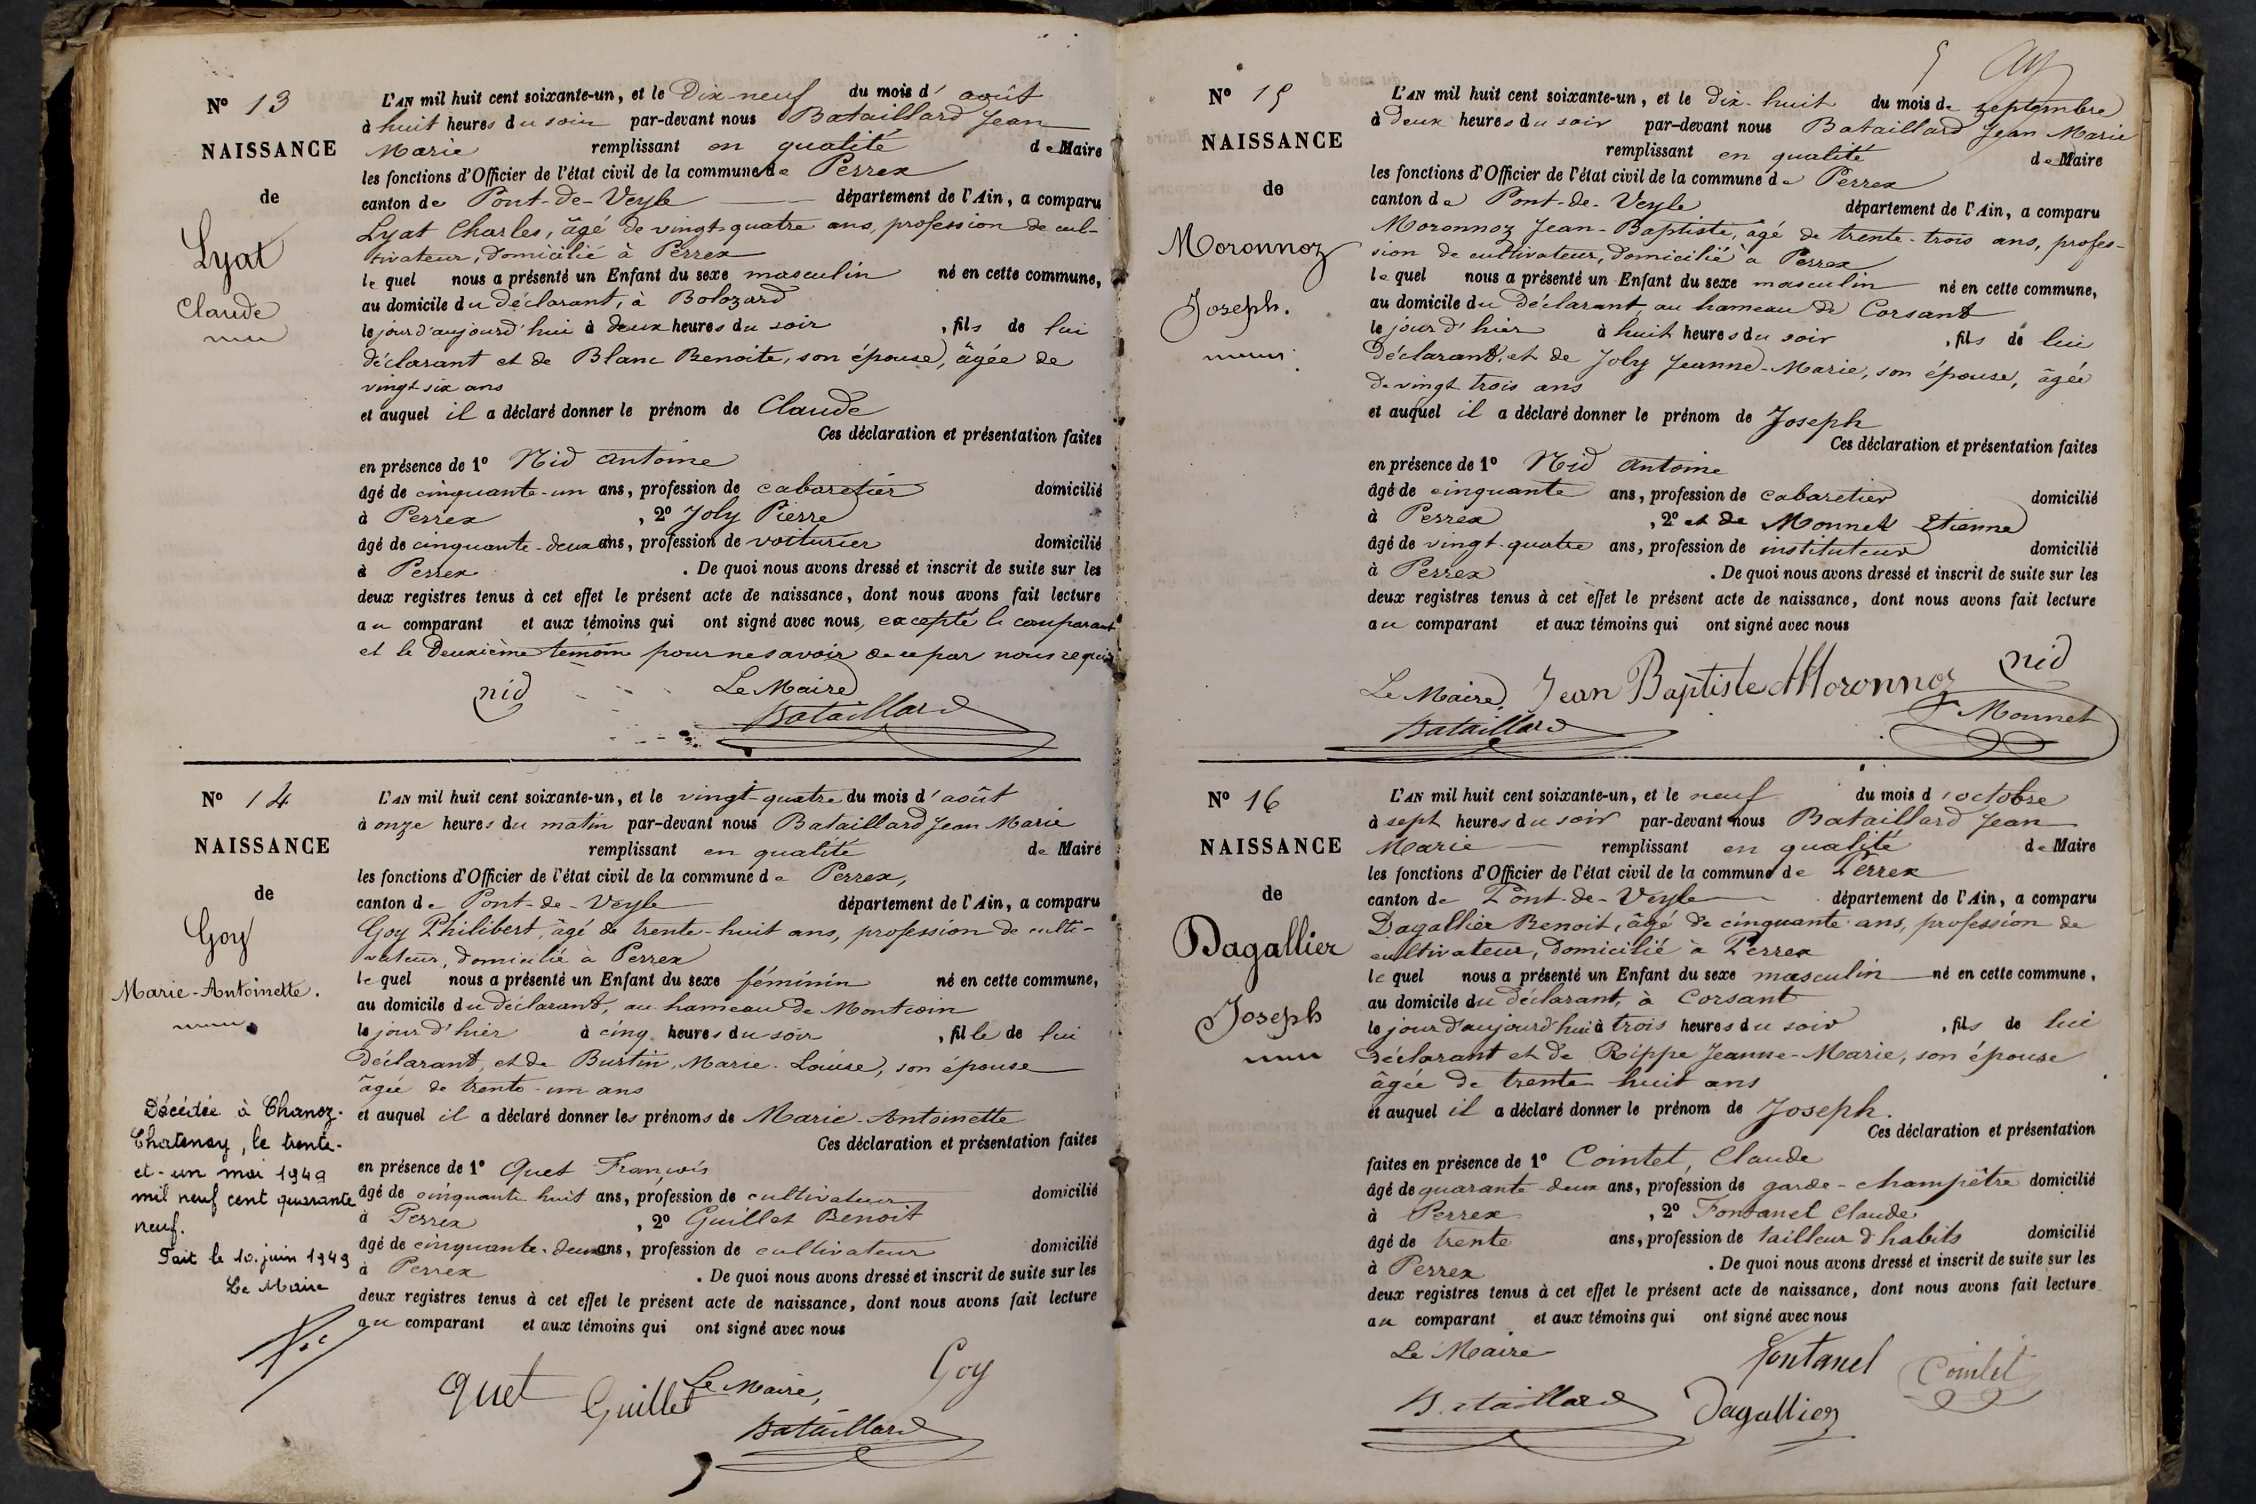 N° 13
NAISSANCE
de
Lyat
Claude
L'AN mil huit cent soixante-un, et le Dix-neuf du mois d' août
à huit heures du soir par-devant nous Bataillard Jean
Marie remplissant en qualité de Maire
les fonctions d'Officier de l'état civil de la commune de Perrex
canton de Pont-de-Veyle département de l'Ain, a comparu
Lyat Charles, âgé de vingt-quatre ans, profession de cul-
tivateur, domicilié à Perrex
le quel nous a présenté un Enfant du sexe masculin né en cette commune,
au domicile du déclarant, à Bolozard
le jour d'aujourd'hui à deux heures du soir , fils de lui
déclarant et de Blanc Benoite, son épouse, âgée de
vingt six ans
et auquel il a déclaré donner le prénom de Claude
Ces déclaration et présentation faites
en présence de 1° Nid Antoine
âgé de cinquante-un ans, profession de cabaretier domicilié
à Perrex , 2° Joly Pierre
âgé de cinquante-deux ans, profession de voiturier domicilié
à Perrex . De quoi nous avons dressé et inscrit de suite sur les
deux registres tenus à cet effet le présent acte de naissance, dont nous avons fait lecture
au comparant et aux témoins qui ont signé avec nous, excepté le comparant
et le deuxième temoin pour ne savoir de ce par nous requis
nid Le Maire
Bataillard
N° 14
NAISSANCE
de
Goy
Marie-Antoinette.
L'AN mil huit cent soixante-un, et le vingt-quatre du mois d'août
à onze heures du matin par-devant nous Bataillard Jean Marie
remplissant en qualité de Maire
les fonctions d'Officier de l'état civil de la commune de Perrex,
canton de Pont-de-Veyle département de l'Ain, a comparu
Goy Philibert, âgé de trente-huit ans, profession de culti-
vateur, domicilié à Perrex
le quel nous a présenté un Enfant du sexe féminin né en cette commune,
au domicile du déclarant, au hameau de Montcoin
le jour d'hier à cinq heures du soir , fille de lui
déclarant, et de Burtin, Marie-Louise, son épouse
âgée de trente-un ans
et auquel il a déclaré donner les prénoms de Marie-Antoinette
Ces déclaration et présentation faites
en présence de 1° Quet François
âgé de cinquante huit ans, profession de cultivateur domicilié
à Perrex , 2° Guillet Benoit
âgé de cinquante-deux ans, profession de cultivateur domicilié
à Perrex . De quoi nous avons dressé et inscrit de suite sur les
deux registres tenus à cet effet le présent acte de naissance, dont nous avons fait lecture
au comparant et aux témoins qui ont signé avec nous
Décédée à Chanoz-
Chatenay, le trente-
et-un mai 1949
mil neuf cent quarante
neuf.
Fait le 10 juin 1949
Le Maire
Quet Guillet Le Maire, Goy
Bataillard
5
N° 15
NAISSANCE
de
Moronnoz
Joseph.
L'AN mil huit cent soixante-un, et le Dix-huit du mois de septembre
à deux heures du soir par-devant nous Bataillard Jean Marie
remplissant en qualité de Maire
les fonctions d'Officier de l'état civil de la commune de Perrex
canton de Pont-de-Veyle département de l'Ain, a comparu
Moronnoz Jean-Baptiste, âgé de trente-trois ans, profes-
sion de cultivateur, domicilié à Perrex
le quel nous a présenté un Enfant du sexe masculin né en cette commune,
au domicile du déclarant, au hameau de Corsant
le jour d'hier à huit heures du soir , fils de lui
déclarant, et de Joly Jeanne-Marie, son épouse, âgée
de vingt trois ans
et auquel il a déclaré donner le prénom de Joseph
Ces déclaration et présentation faites
en présence de 1° Nid Antoine
âgé de cinquante ans, profession de cabaretier domicilié
à Perrex , 2° et de Monnet Etienne
âgé de vingt-quatre ans, profession de instituteur domicilié
à Perrex . De quoi nous avons dressé et inscrit de suite sur les
deux registres tenus à cet effet le présent acte de naissance, dont nous avons fait lecture
au comparant et aux témoins qui ont signé avec nous
Le Maire, Jean Baptiste Moronnoz nid
Bataillard Monnet
N° 16
NAISSANCE
de
Dagallier
Joseph
L'AN mil huit cent soixante-un, et le neuf du mois d'octobre
à sept heures du soir par-devant nous Bataillard Jean
Marie remplissant en qualité de Maire
les fonctions d'Officier de l'état civil de la commune de Perrex
canton de Pont-de-Veyle département de l'Ain, a comparu
Dagallier Benoit, âgé de cinquante ans, profession de
cultivateur, domicilié à Perrex
le quel nous a présenté un Enfant du sexe masculin né en cette commune,
au domicile du déclarant, à Corsant
le jour d'aujourd'hui à trois heures du soir , fils de lui
déclarant et de Rippe Jeanne-Marie, son épouse
âgée de trente huit ans
et auquel il a déclaré donner le prénom de Joseph.
Ces déclaration et présentation
faites en présence de 1° Cointet, Claude
âgé de quarante-deux ans, profession de garde-champêtre domicilié
à Perrex , 2° Fontanel Claude
âgé de trente ans, profession de tailleur d'habits domicilié
à Perrex . De quoi nous avons dressé et inscrit de suite sur les
deux registres tenus à cet effet le présent acte de naissance, dont nous avons fait lecture
au comparant et aux témoins qui ont signé avec nous
Le Maire fontanel Cointet
Bataillard Dagallier